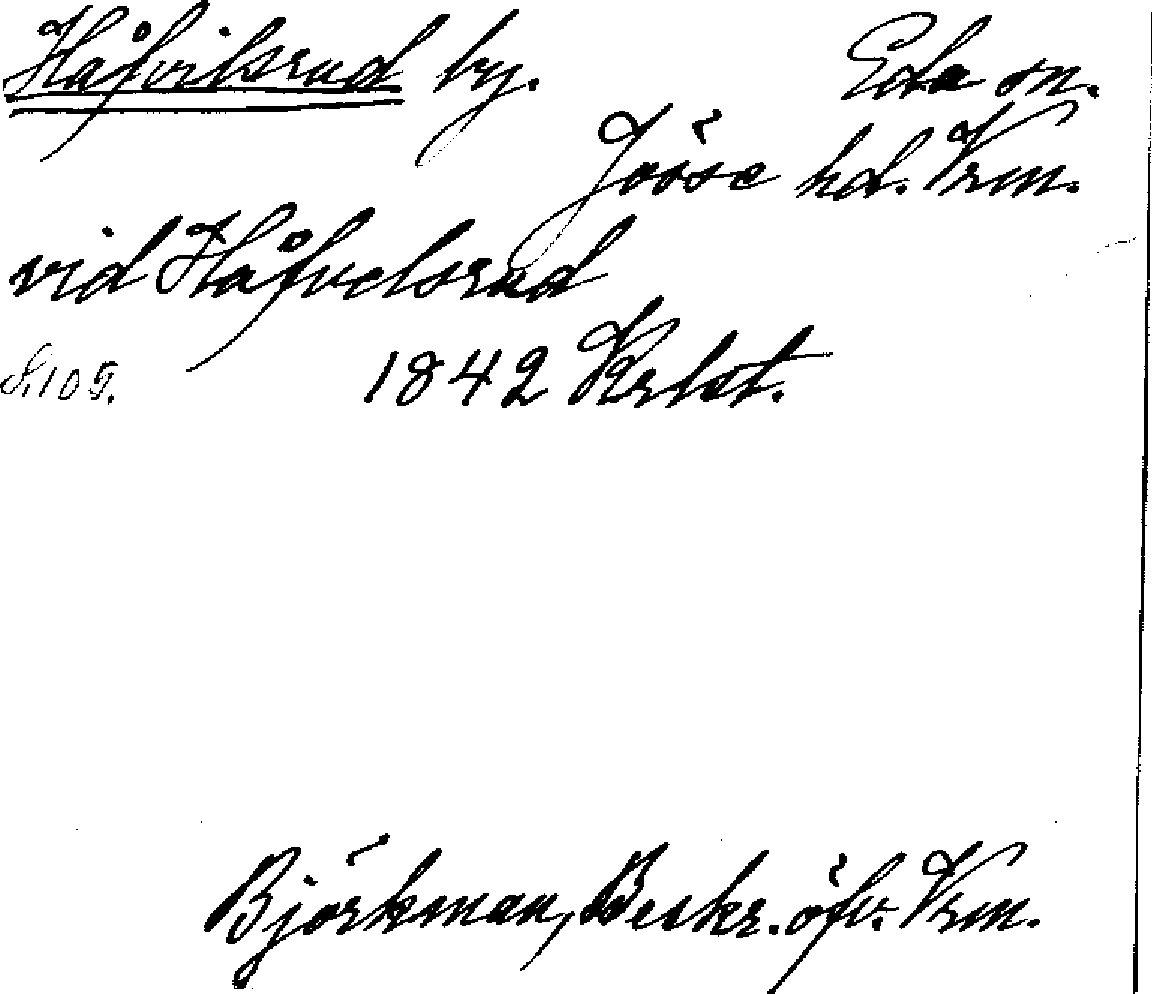 Håfvilsrud by. Eda sn.
Jösse hd. Vrm.
vid Håfvelsrud
S. 105. 1842 Krlst.
Björkman, Beskr. öfv. Vrm.